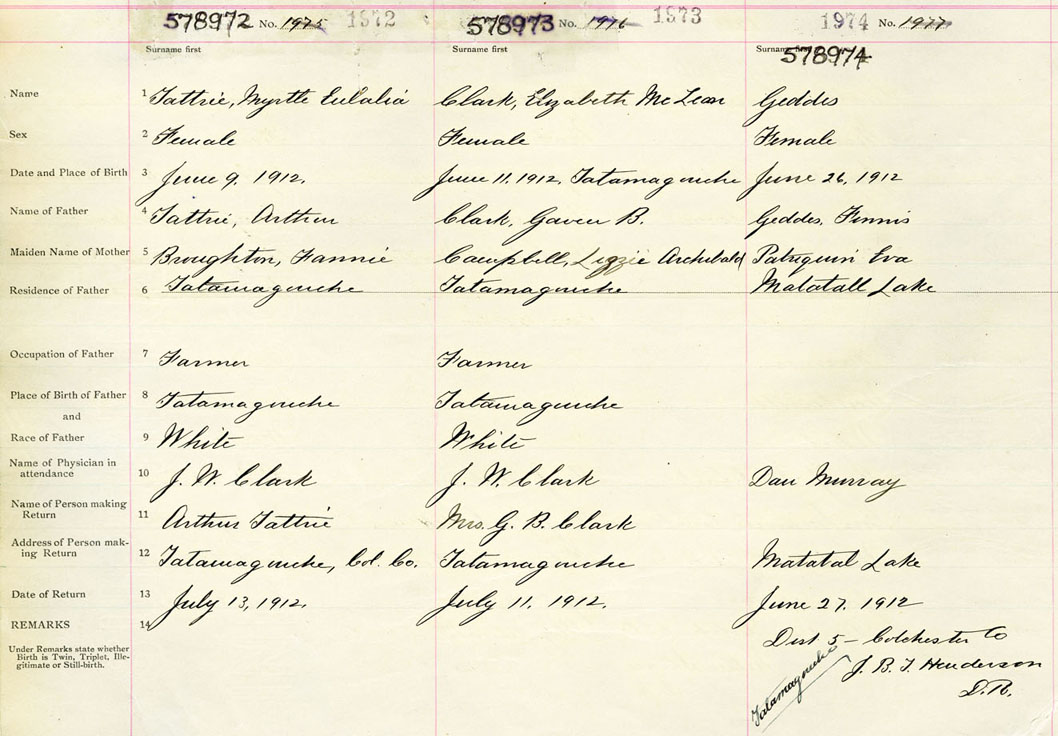 578972 No. 1975 1972 578973 No. 1976 1973 1974 No. 1977
Surname first Surname first Surname first
578974
Name 1 Tattrie, Myrtle Eulalia Clark, Elizabeth McLean Geddes
Sex 2 Female Female Female
Date and Place of Birth 3 June 9, 1912. June 11, 1912, Tatamagouche June 26, 1912
Name of Father 4 Tattrie, Arthur Clark, Gaven B. Geddes, Finnis
Maiden Name of Mother 5 Broughton, Fannie Campbell, Lizzie Archibald Patriquin Eva
Residence of Father 6 Tatamagouche Tatamagouche Matatall Lake
Occupation of Father 7 Farmer Farmer
Place of Birth of Father 8 Tatamagouche Tatamagouche
and
Race of Father 9 White White
Name of Physician in
attendance 10 J. W. Clark J. W. Clark Dan Murray
Name of Person making
Return 11 Arthur Tattrie Mrs. G. B. Clark
Address of Person mak-
ing Return 12 Tatamagouche, Col. Co. Tatamagouche Matatal Lake
Date of Return 13 July 13, 1912. July 11, 1912. June 27, 1912
REMARKS 14
Under Remarks state whether
Birth is Twin, Triplet, Ille-
gitimate or Still-birth.
Dist 5 - Colchester Co
Tatamagouche
J. B. T. Henderson
D.R.